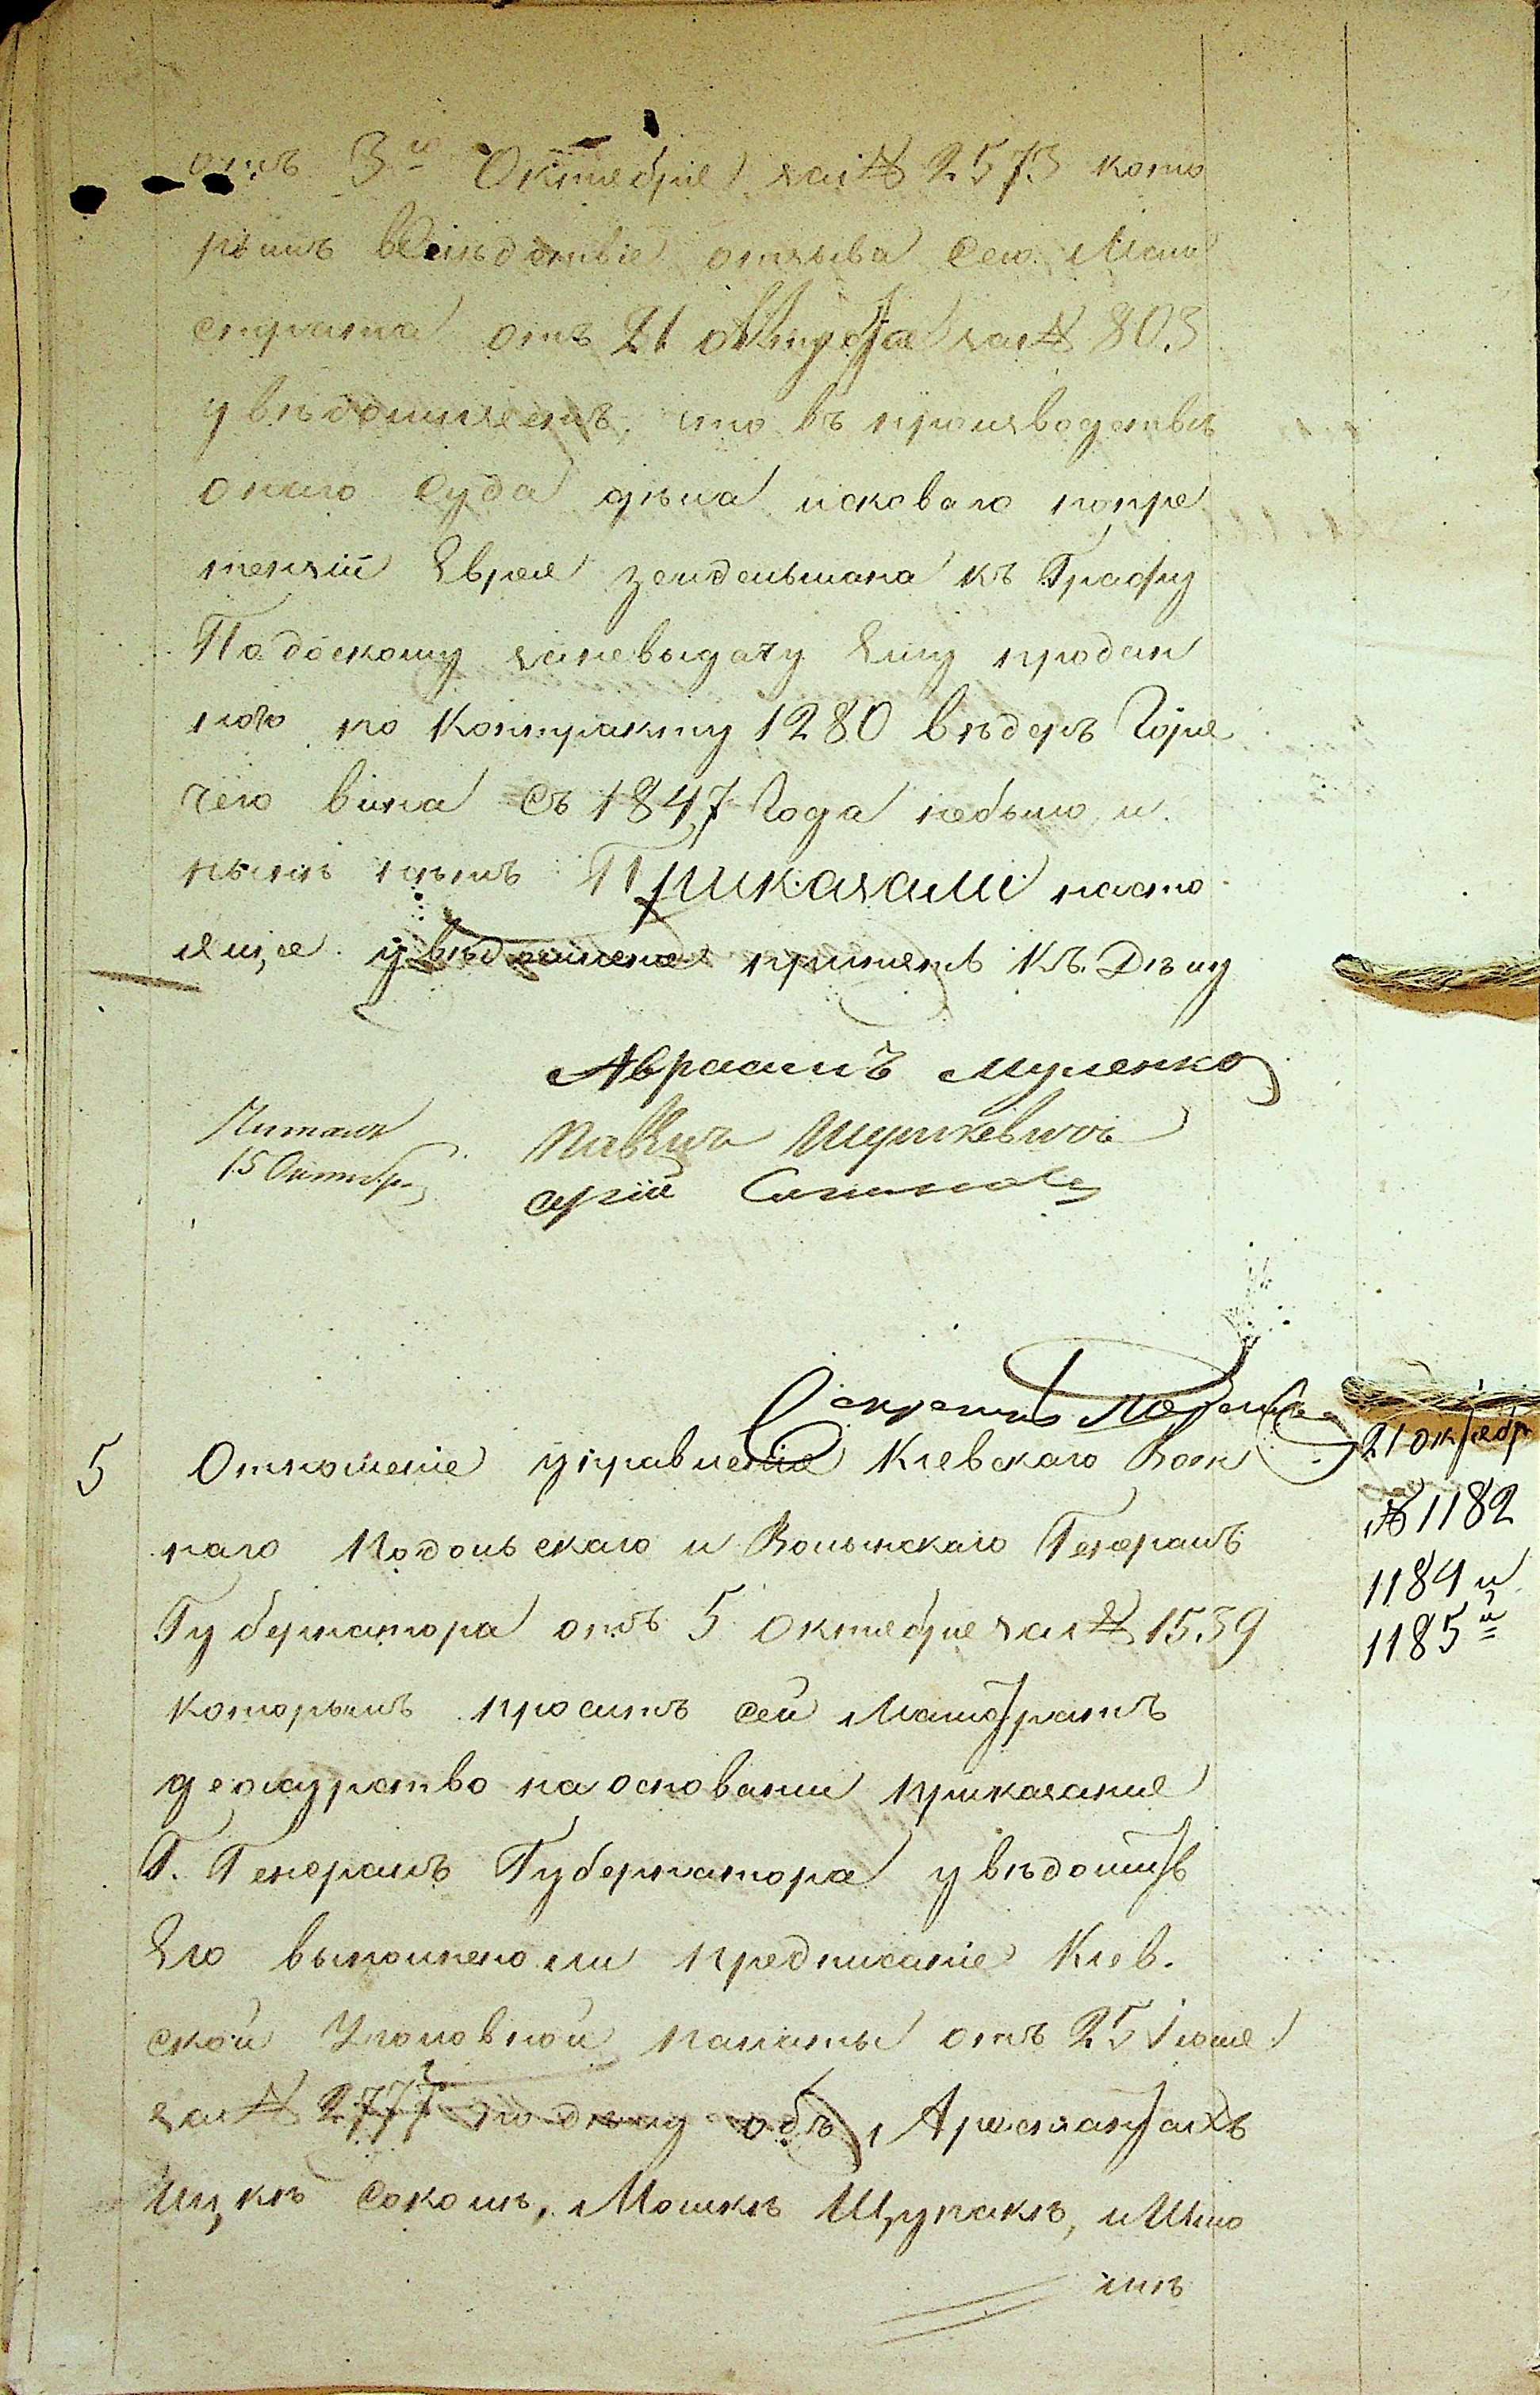 отъ 3го Октября за № 2573 кото
рымъ вслѣдствіе отзыва сего Маги
страта отъ 21 Августа за № 803
увѣдомляетъ, что въ производствѣ
онаго суда дѣла исковаго попре
тензіи Еврея Зейдельмана къ Графу
Подоскому заневыдачу Ему продан
ного по контракту 1280 вѣдеръ Горя
чего вина съ 1847 Года небыло и
нынѣ нѣтъ Приказали насто
ящее увѣдомленіе принять къ Дѣлу
Авраамъ Муленко
Читалъ
15 Октября
Секретарь
21 октябр
5 Отношеніе управленія Кіевскаго Воен
№ 1182
наго Подольскаго и Волынскаго Генералъ
1184 и
Губернатора отъ 5 Октября за № 1539
1185й
которымъ проситъ сей Магистратъ
дежурство на основании приказанія
Г. Генералъ Губернатора увѣдомить
Его выполнено ли предписаніе Кіев.
ской Уголовной палаты отъ 25 Іюля
за № 2777 по дѣлу объ Арестантахъ
Ицкѣ Соколѣ, Мошкѣ Щупакѣ, и Шло
имѣ